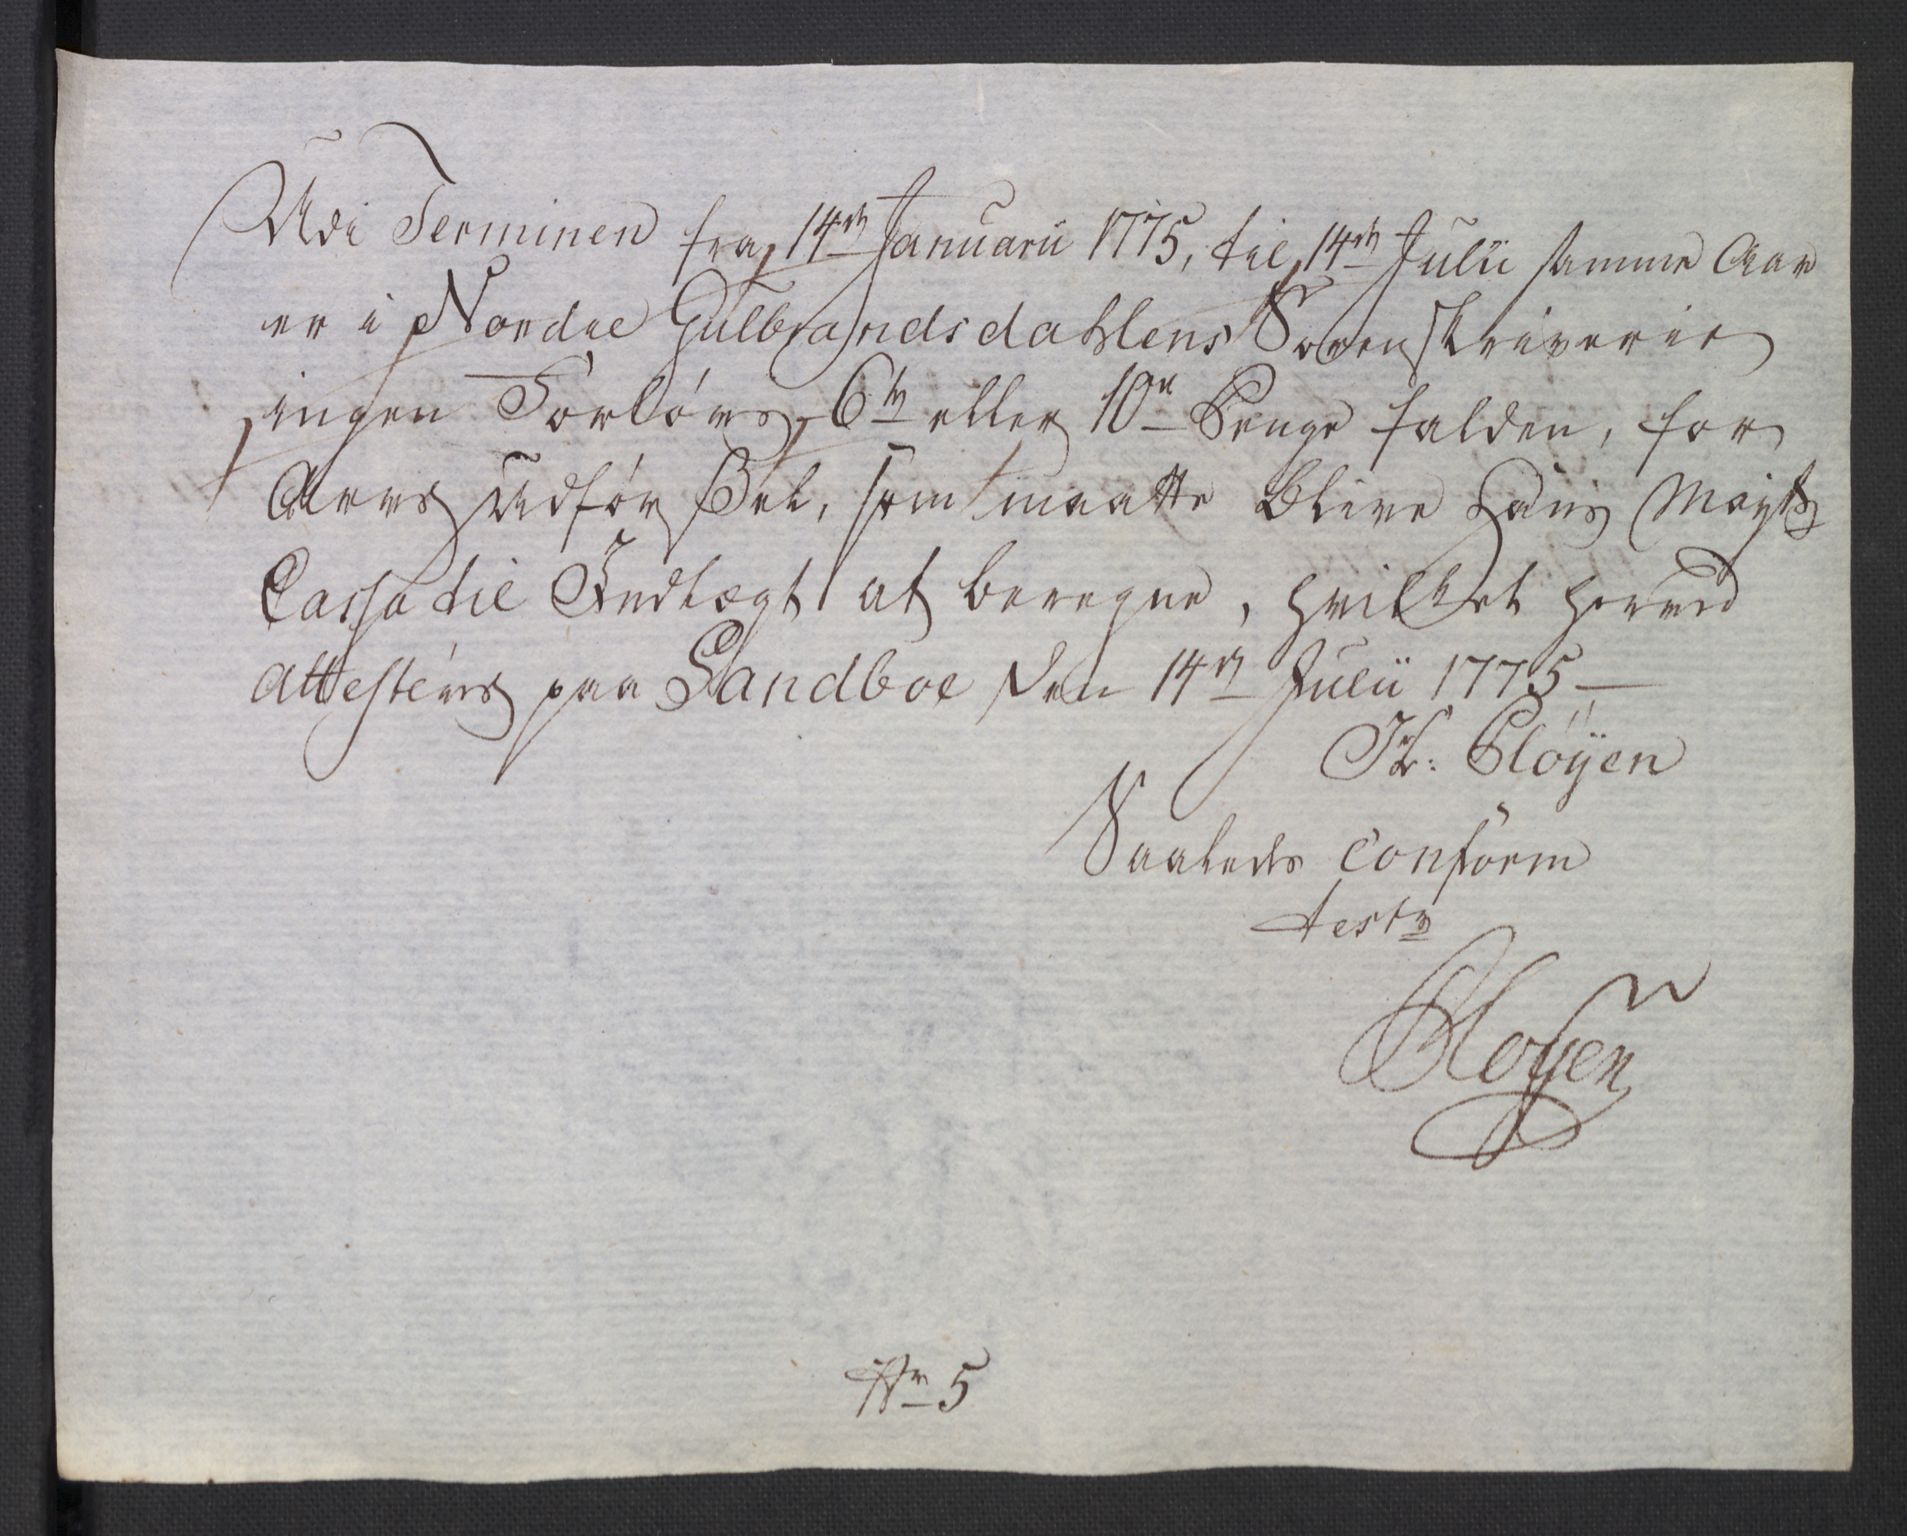 Udi Terminen fra 14de Januarii 1775, til 14de Julii samme Aar
er i Nordre Gulbrandsdahlens Sorenskriverie
ingen Forlovs 6te eller 10de Penge falden, for
Arvs Udførßel, som maatte blive Hans Mayts
Cassa til Indtægt at beregne, hvilket herved
attesteres paa Sandboe den 14de Julii 1775
Pløyen
Saaledes conform
test
Pløyen
No 5